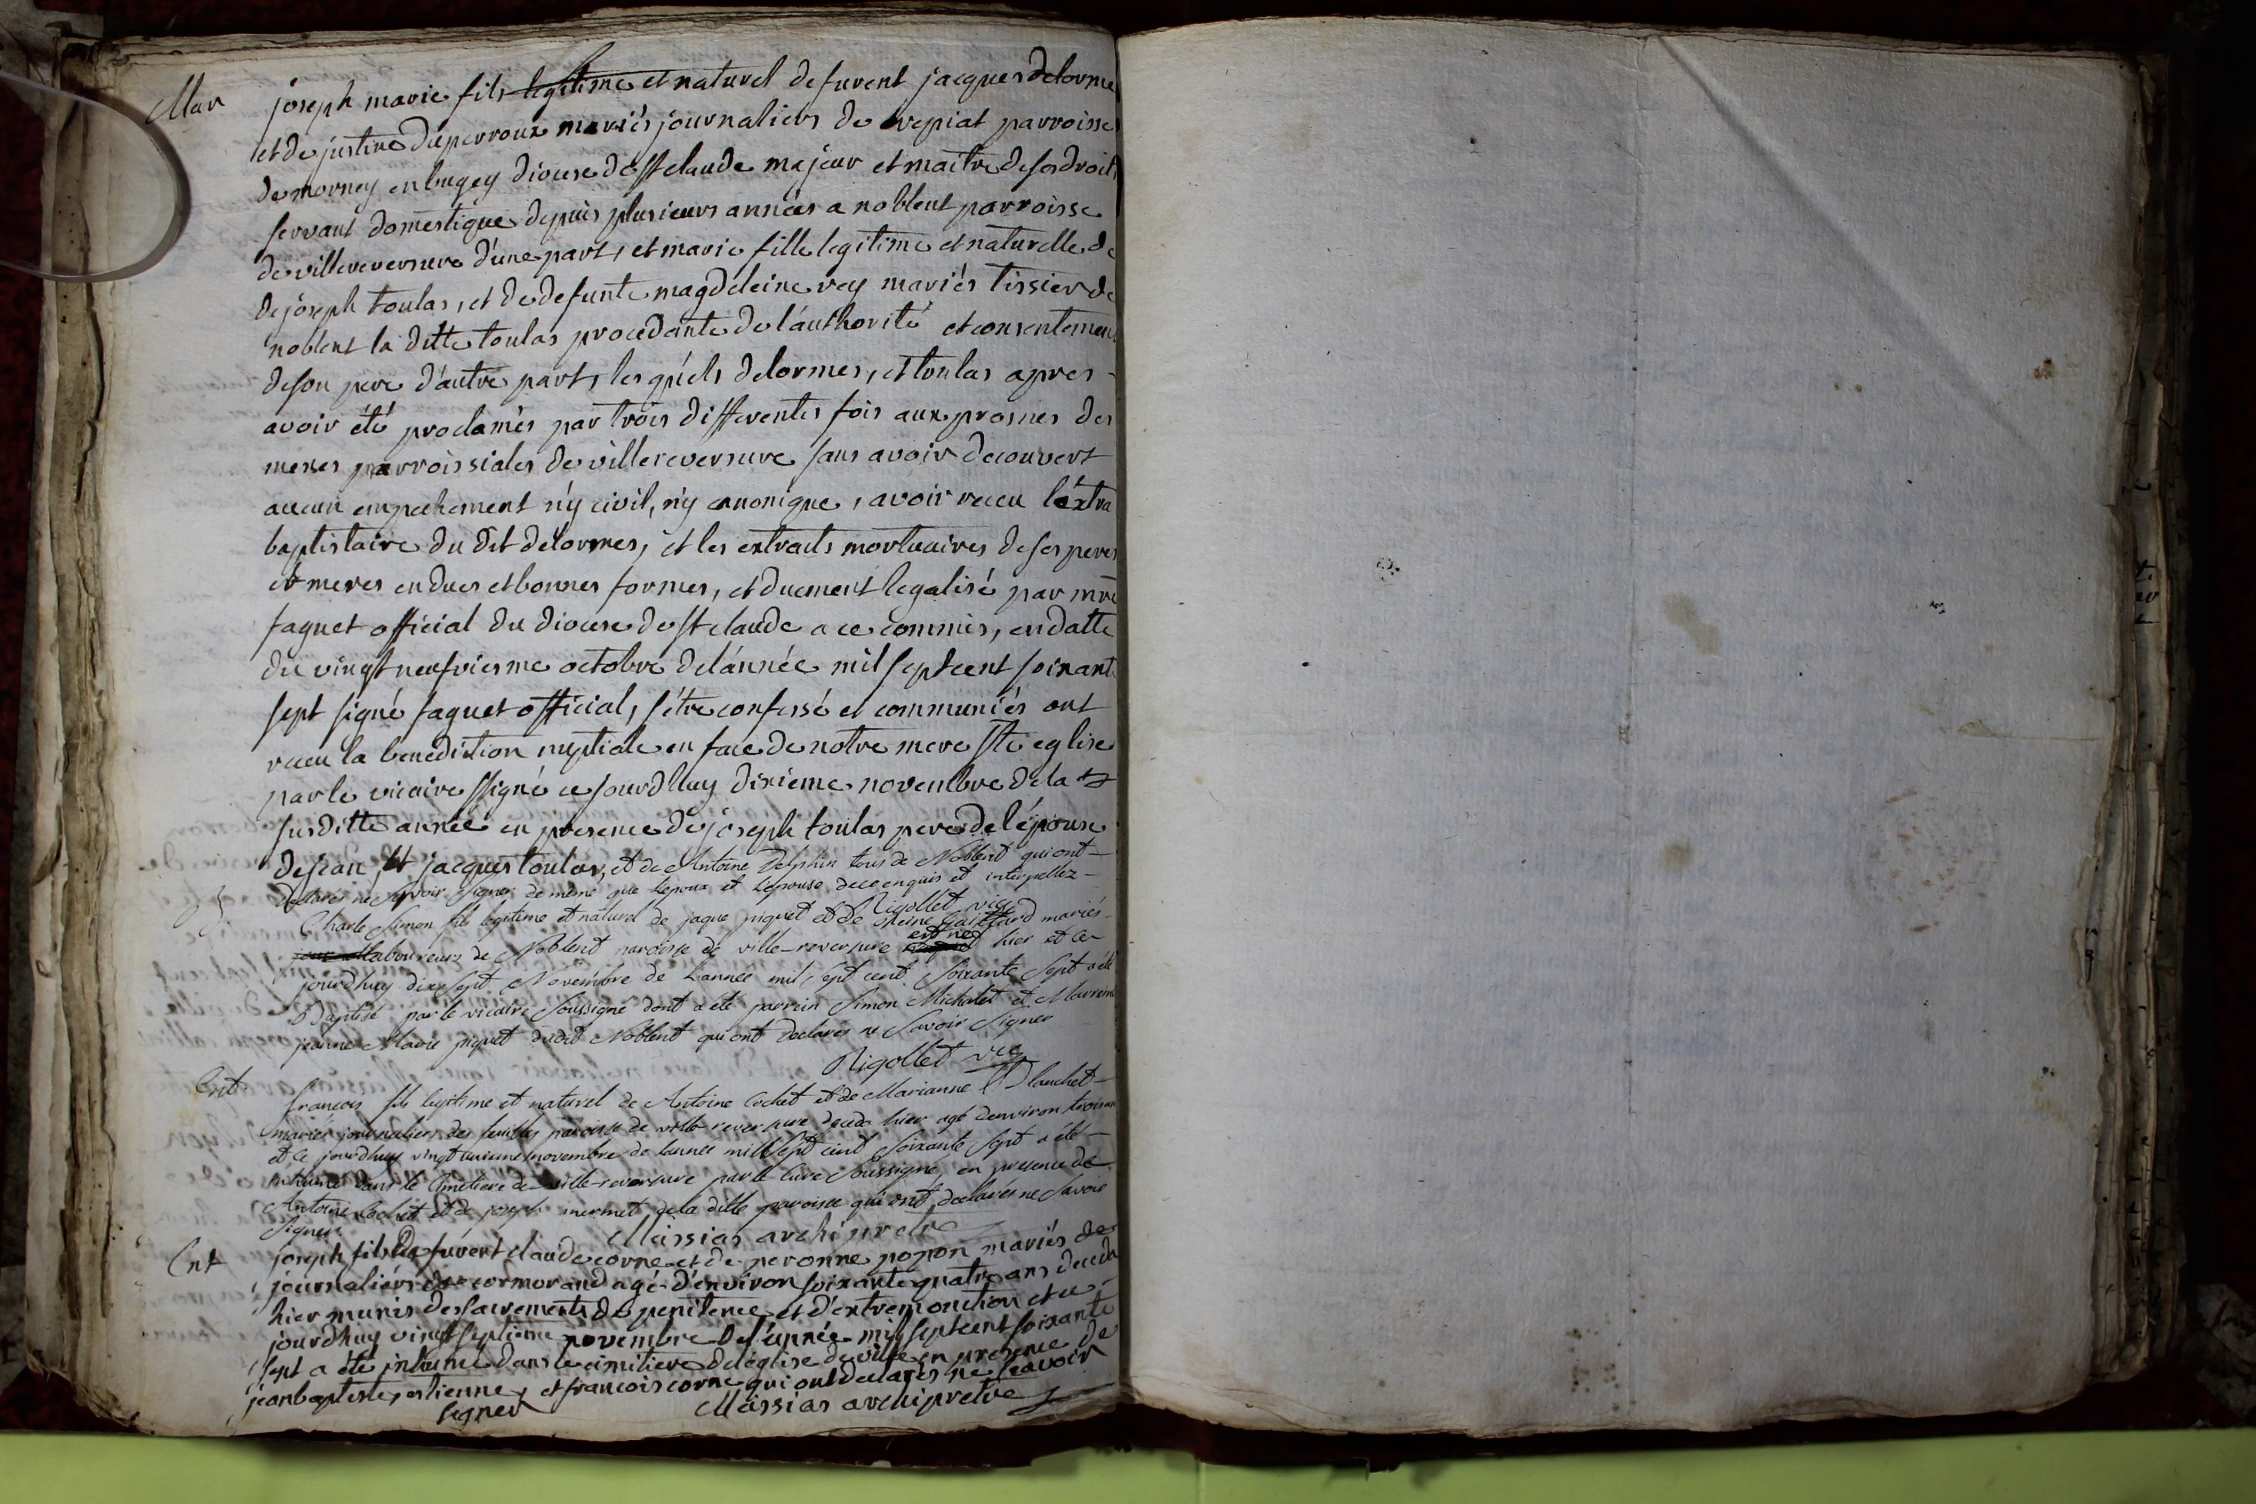 Mar
joseph marie fils legitime et naturel de fuvent jacques delorme
et de justine duperroux mariés journaliers de vepiat parroisse
de mornay en bugey diocese de st claude majeur et maitre de ses droits
servant domestique depuis plusieurs années a noblent parroisse
de villereversure d'une part, et marie fille legitime et naturelle de
de joseph toulas, et de defunte magdeleine rey mariés tissier de
noblent la ditte toulas procedante de l'authorité et consentement
de son pere d'autre part, les quels delormes, et toulas apres
avoir été proclamés par trois differentes fois aux prosnes des
messes parroissiales de villereversure sans avoir decouvert
aucun empechement n'y civil, n'y canonique, avoir receu l'extra
baptistaire du dit delormes, et les extraits mortuaires de ses peres
et meres en dues et bonnes formes, et duement legalisé par mre
faguet official du diocese de st claude a ce commis, en datte
du vingt neufviesme octobre de l'année mil sept cent soixante
sept signé faguet official, s'étre confessé et communiés ont
receu la benediction nuptiale en face de notre mere ste eglise
par le vicaire ssigné ce jourdhuy dixieme novembre de la
sus ditte année en presence de joseph toulas pere de l'épouse
de jean, et jacques toulas, et de Antoine Delphin tous de Noblent qui ont
declarés ne savoir signer de meme que l'epoux et l'epouse de ce enquis et interpellez
Rigollet vic
Charle Simon fils legitime et naturel de jaque piquet et de reine Gaillard mariés
laboureurs de Noblent paroisse de ville-reversure est né hier et ce
jourdhuy dix sept Novembre de l'année mil sept cent soixante sept a été
Baptisé par le vicaire soussigné dont a été parrein Simon Michalet et Marreine
jeanne Marie piquet dudit Noblent qui ont declarés ne Savoir Signer
Rigollet vic
Ent
françois fils legitime et naturel de Antoine Cochet et de Marianne Blanchet
mariés journaliers des feuilles paroisse de ville reversure decedé hier agé d'environ trois ans
et ce jourdhuy vingt unieme novembre de l'année mil sept cent soixante sept a été
inhumé dans le Cimetiere de ville-reversure par le Curé Soussigné en presence de
Antoine Cochet et de joseph mermet de la ditte paroisse qui ont declarés ne Savoir
Signer
Massias archipretre
Ent
joseph fils de fuvent claude corne et de peronne popon mariés de
journaliers de cormorand agé d'environ soixante quatre ans decedé
hier munis des sacrements de penitence et d'extremonction et ce
jourdhuy vingt septieme novembre de l'année mil sept cent soixante
sept a été inhumé dans le cimitiere de l'église de ville en presence de
jean baptiste, estienne, et francois corne qui ont declarés ne scavoir
signer
Massias archipretre